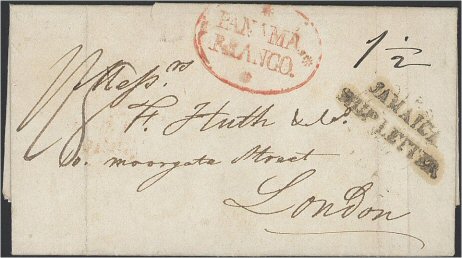 PANAMÁ
FRANCO.
1½
JAMAICA
SHIP LETTER
Messrs
F. Huth & Co.
moorgate Street
London